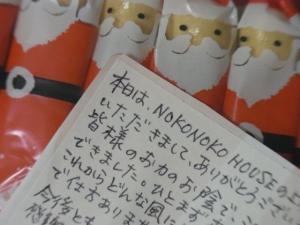 本日は、NOKONOKO HOUSEの上
いただきまして、ありがとうござい
皆様のお力のお陰で、こ
できました。ひとまず
これからどんな風に
で仕方ありま
今後とも